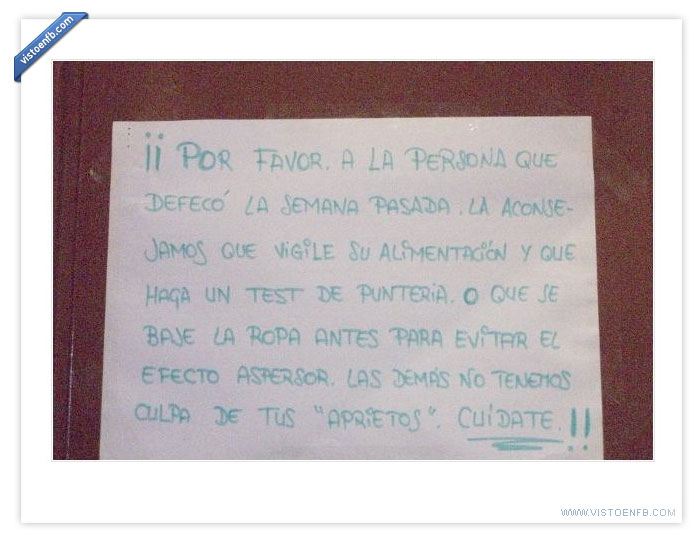 vistoenfb.com
¡¡ POR FAVOR. A LA PERSONA QUE
DEFECÓ LA SEMANA PASADA. LA ACONSE-
JAMOS QUE VIGILE SU ALIMENTACIÓN Y QUE
HAGA UN TEST DE PUNTERIA. O QUE SE
BAJE LA ROPA ANTES PARA EVITAR EL
EFECTO ASPERSOR. LAS DEMÁS NO TENEMOS
CULPA DE TUS "APRIETOS". CUÍDATE.!!
WWW.VISTOENFB.COM